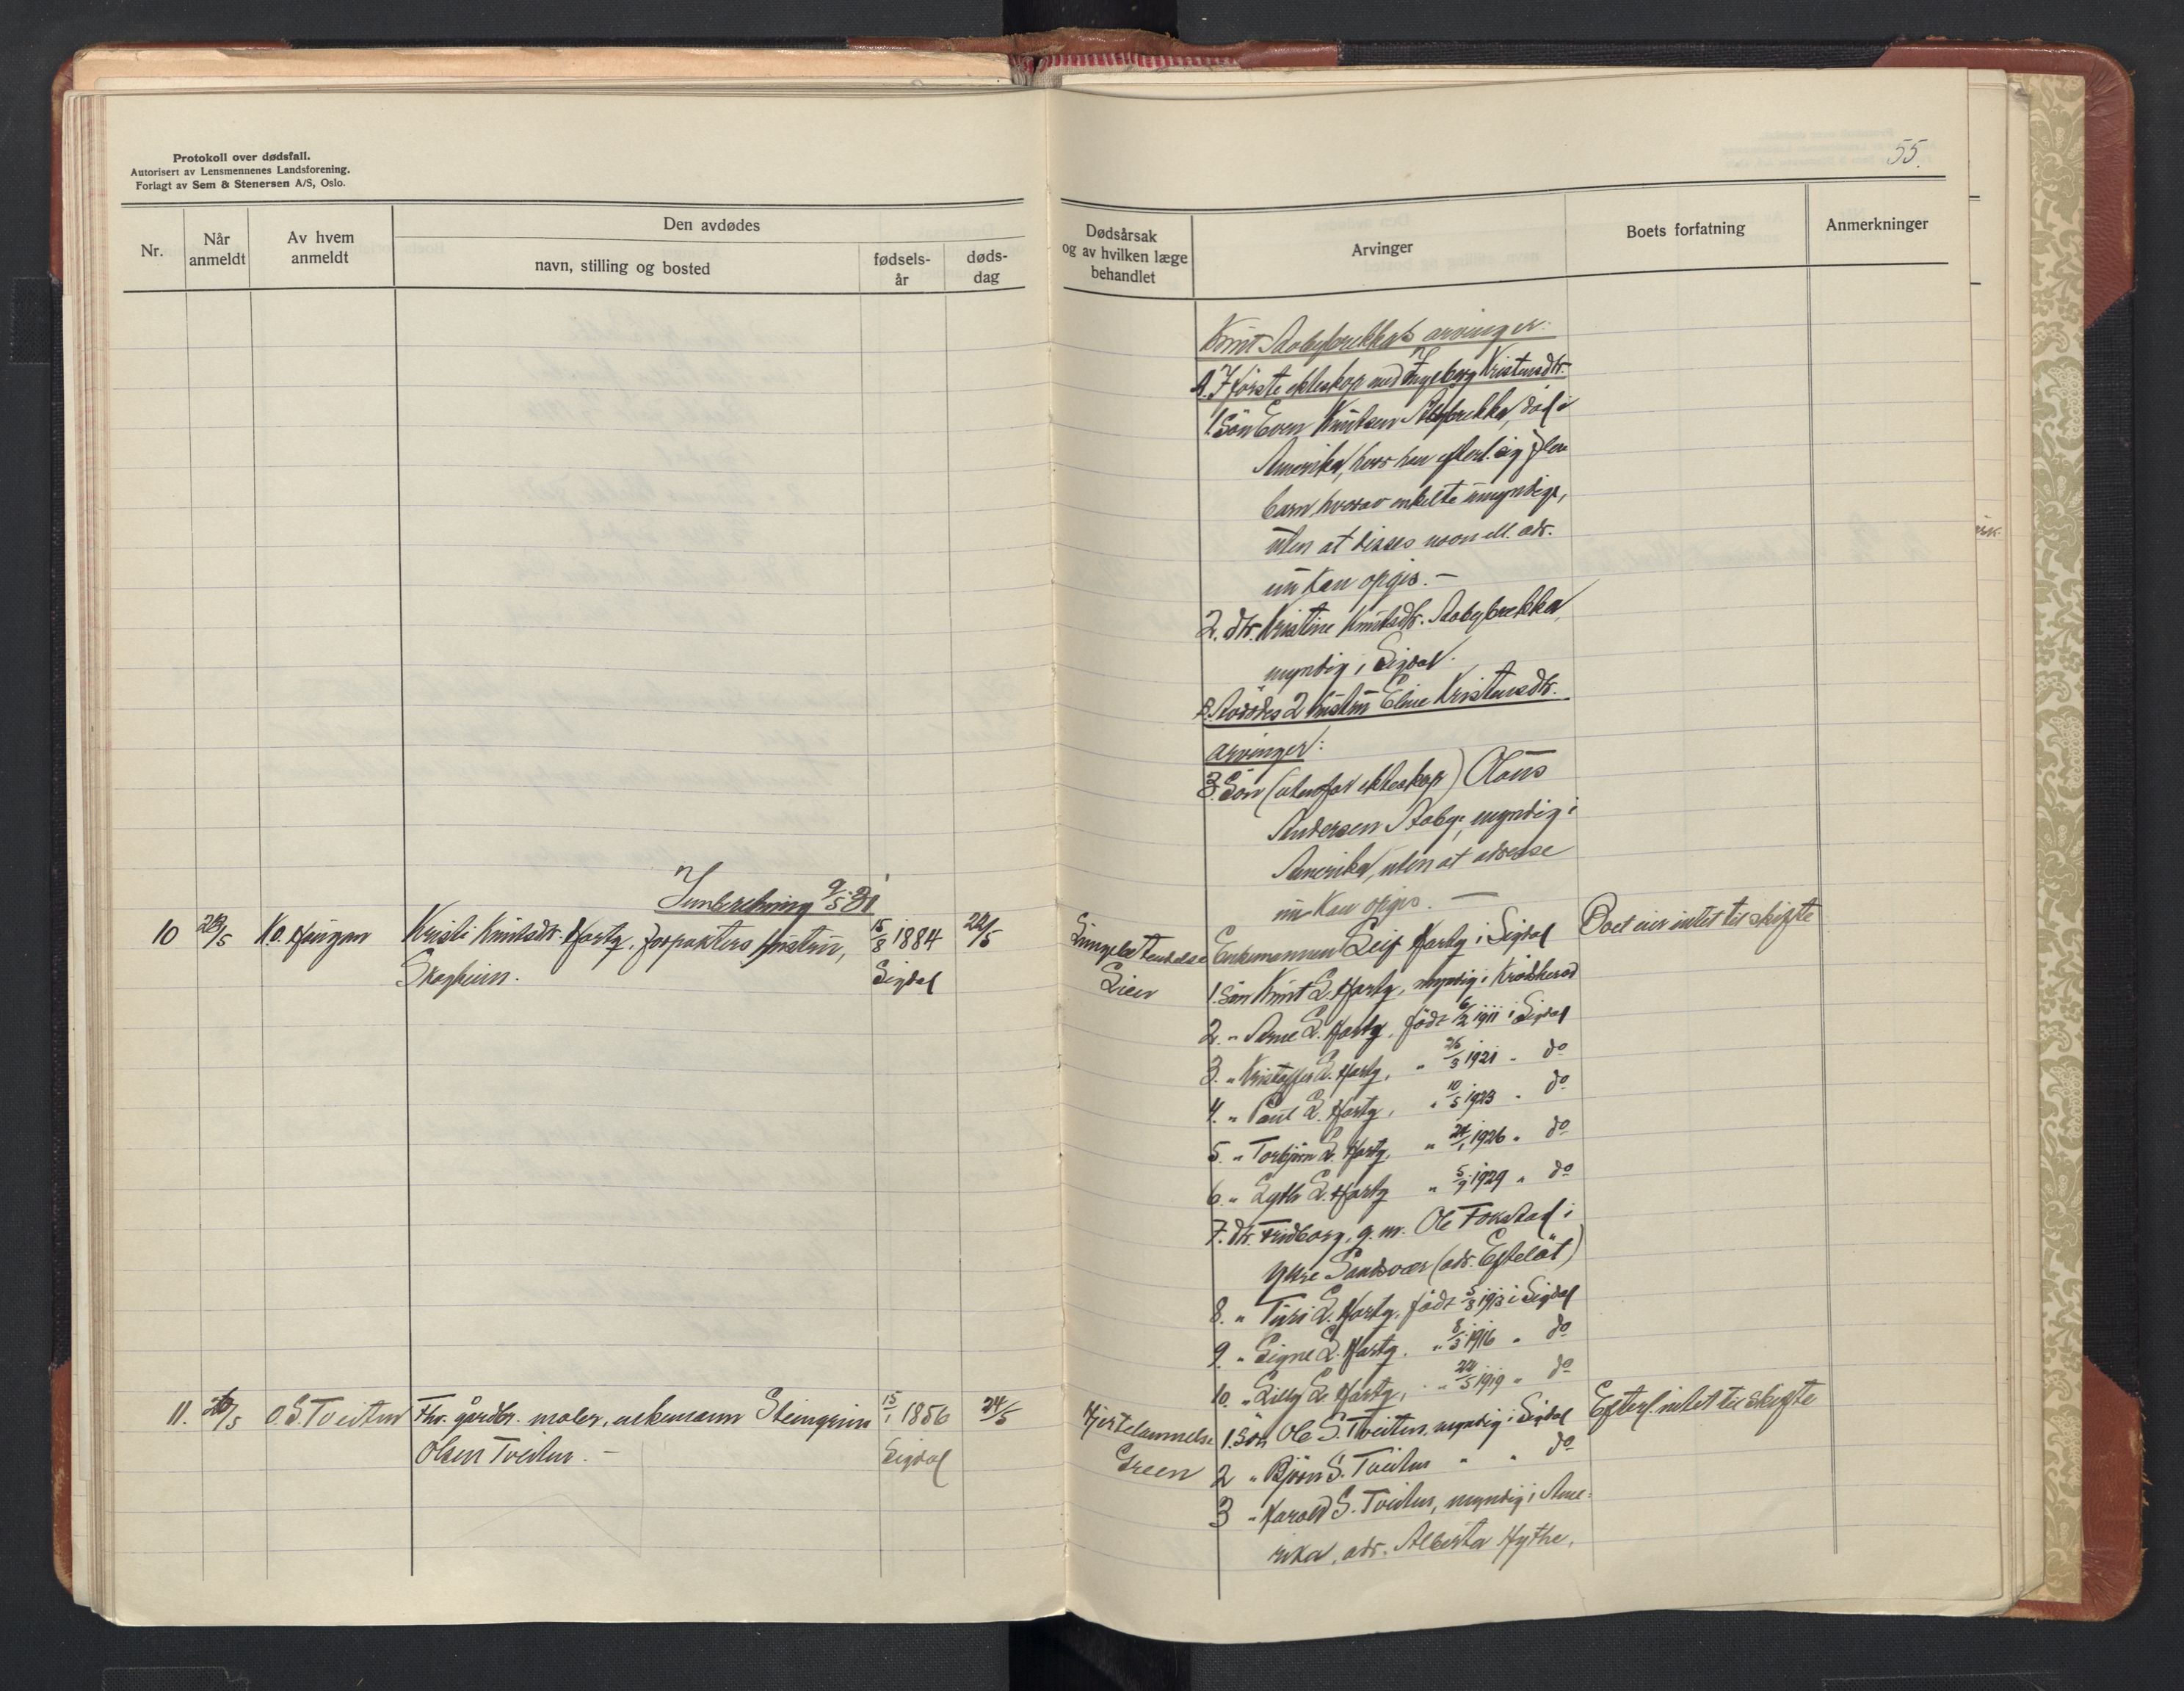 Protokoll over dødsfall.
Autorisert av Lensmennenes Landsforening.
Forlagt av Sem & Stenersen A/S, Oslo.
Nr.
Når anmeldt
Av hvem anmeldt
Den avdødes
navn, stilling og bosted
fødsels-år
døds-dag
Innberetning 9/5 31
10
K.O. Haugan
Kristi Knutsdtr. Hartz, forpakters hustru, 15/8 1884 22/5
Skogheim. Sigdal
11. O.S. Tveiten Fhv. gårdbr. maler, enkemann Steingrim 15/1 1856 24/5
Olsen Tveiten. – Sigdal
55.
Dødsårsak
og av hvilken læge
behandlet
Arvinger
Boets forfatning
Anmerkninger
Knut Aabybrekkas arvinger:
A. I første ekteskap med Ingeborg Kristensdtr.
1. Sön Even Knutsen Aabybrekka, död i
Amerika, hvor han efterl. sig flere
barn hvorav enkelte umyndige,
uten at disses navn ell. adr.
nu kan opgis. –
2. dtr. Kristine Knutsdtr. Aabybrekka,
myndig i Sigdal.
B. Avdödes 2 hustru Eline Kristensdtr.
arvinger:
3. Sön (utenfor ekteskap) Olaus
Andersen Aaby, myndig i
Amerika, uten at adresse
nu kan opgis. –
Lungebetendelse
Lien
Enkemannen Leif Hartz i Sigdal Boet eier intet til skifte
1. Sön Knut L. Hartz, myndig i Krødsherad
2. " Arne L. Hartz, födt 6/2 1911 i Sigdal
3. " Kristoffer L. Hartz, " 26/3 1921 " do
4. " Paul L. Hartz, " 10/5 1923 " do
5. " Torbjörn L. Hartz, " 24/1 1926 " do
6. " Lyth L. Hartz " 5/9 1929 " do
7. dtr. Fridborg, g. m. Ole Fokstad i
Ytre Sandsvær (adr. Efteløt)
8. " Turi L. Hartz, födt 5/3 1913 i Sigdal
9. " Signe L. Hartz, " 8/5 1916 " do
10. " Lilly L. Hartz, " 22/5 1919 " do
Hjertelammelse
Green
1. Sön Ole S. Tveiten, myndig i Sigdal Efterl. intet til skifte
2 " Björn S. Tveiten " " do
3 " Harald S. Tveiten, myndig i Ame-
rika, adr. Alberta Hythe,